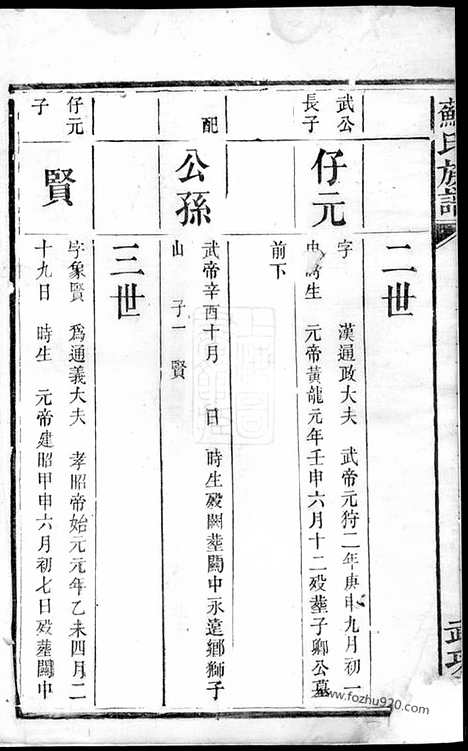 蘇氏族譜
武功
二世
武公長子
仔元
字 漢通政大夫 武帝元狩二年庚申九月初一
時生 元帝黃龍元年壬申六月十二歿葬子卿公墓
前下
配
公孫
武帝辛酉十月 日 時生歿闕葬關中永遠鄉獅子
山 子一 賢
三世
仔元子
賢
字象賢 為通義大夫 孝昭帝始元元年乙未四月二
十九日 時生 元帝建昭甲申六月初七日歿葬關中
www.fozhu920.com